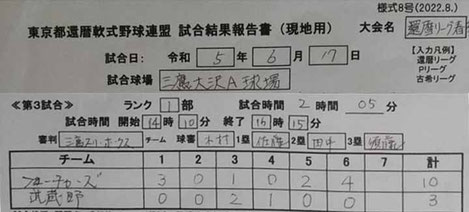 様式8号(2022.8.)
東京都還暦軟式野球連盟 試合結果報告書(現地用) 大会名 還暦リーグ春
試合日: 令和 5 年 6 月 17 日
【入力凡例】
還暦リーグ
Pリーグ
古希リーグ
試合球場 三鷹大沢A球場
≪第3試合≫ ランク 1 部 試合時間 2 時間 05 分
試合時間 開始 14 時 10 分 終了 16 時 15 分
審判 チーム 球審 木村 1塁 佐藤 2塁 田中 3塁
チーム 1 2 3 4 5 6 7 計
フューチャーズ 3 0 1 0 2 4 10
武蔵野 0 0 2 1 0 0 3